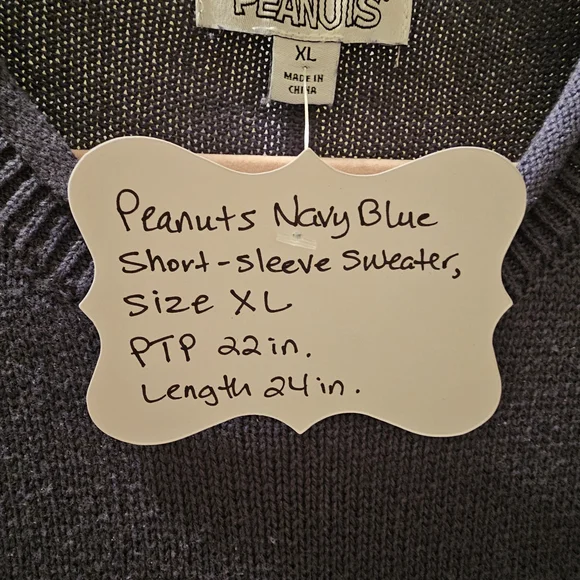 PEANUTS
XL
MADE IN
CHINA
Peanuts Navy Blue
Short-sleeve Sweater,
Size XL
PTP 22 in.
Length 24 in.